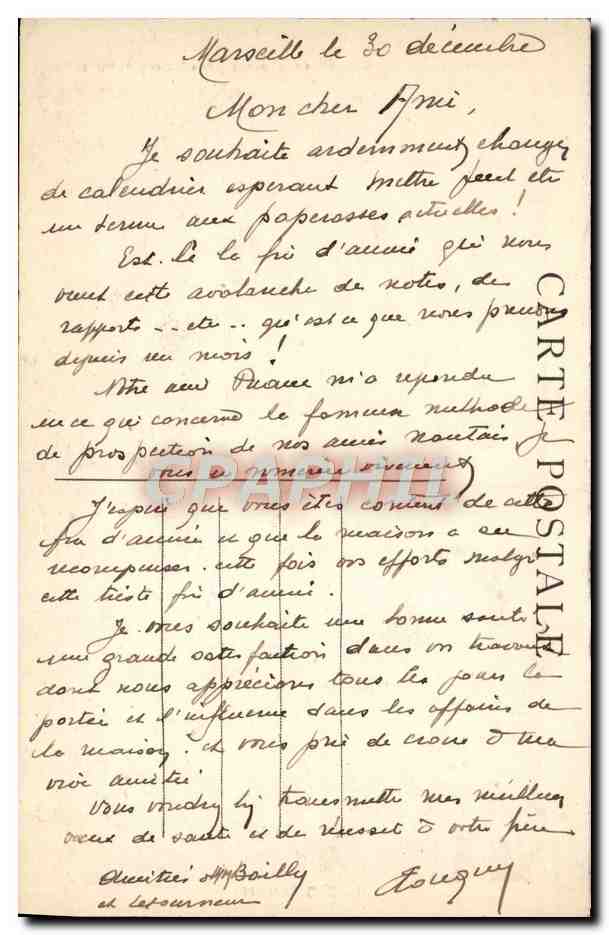 Marseille le 30 décembre
Mon cher Ami,
Je souhaite ardemment changer
de calendrier esperant mettre
un terme aux paperasses actuelles !
Est-ce la fin d'année qui nous
vaut cette avalanche de notes, de
rapports -- etc -- qu'est ce que nous prenons
depuis un mois !
Notre ami m'a repondu
en ce qui concerne la fameuse methode
de prospection de nos amis nantais, je
vous en remercie vivement
J'espère que vous êtes content de cette
fin d'année et que la maison a su
recompenser cette fois vos efforts malgré
cette triste fin d'année.
Je vous souhaite une bonne santé
une grande satisfaction dans vos travaux
dont nous apprécions tous les jours la
portée et l'influence dans les affaires de
la maison. et vous prie de croire à ma
vraie amitié
Vous voudrez bien transmettre mes meilleurs
vœux de santé et de réussite à votre frère
Amitiés à Bailly
et Letourneur
CARTE POSTALE
CPAPHIL